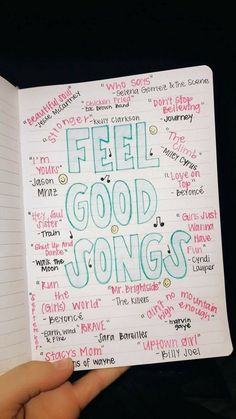 "Beautiful Soul"
- Jesse McCartney
"Who Says"
- Selena Gomez & The Scene
"Chicken Fried"
- Zac Brown Band
"Don't Stop
Believing"
- Journey
"Stronger"
- Kelly Clarkson
FEEL
GOOD
SONGS
"The
Climb"
- Miley Cyrus
"I'm
Yours"
- Jason
Mraz
"Love on
Top"
- Beyoncé
"Hey, Soul
Sister"
- Train
"Girls Just
Wanna
Have
Fun"
- Cyndi
Lauper
"Shut Up And
Dance"
- Walk The
Moon
"Run
the
(Girls)
World"
- Beyoncé
"Mr. Brightside"
- The Killers
"ain't no mountain
high enough"
- marvin
gaye
- Earth, Wind
& Fire
"BRAVE"
- Sara Bareilles
"Uptown Girl"
- Billy Joel
"Stacy's Mom"
of wayne